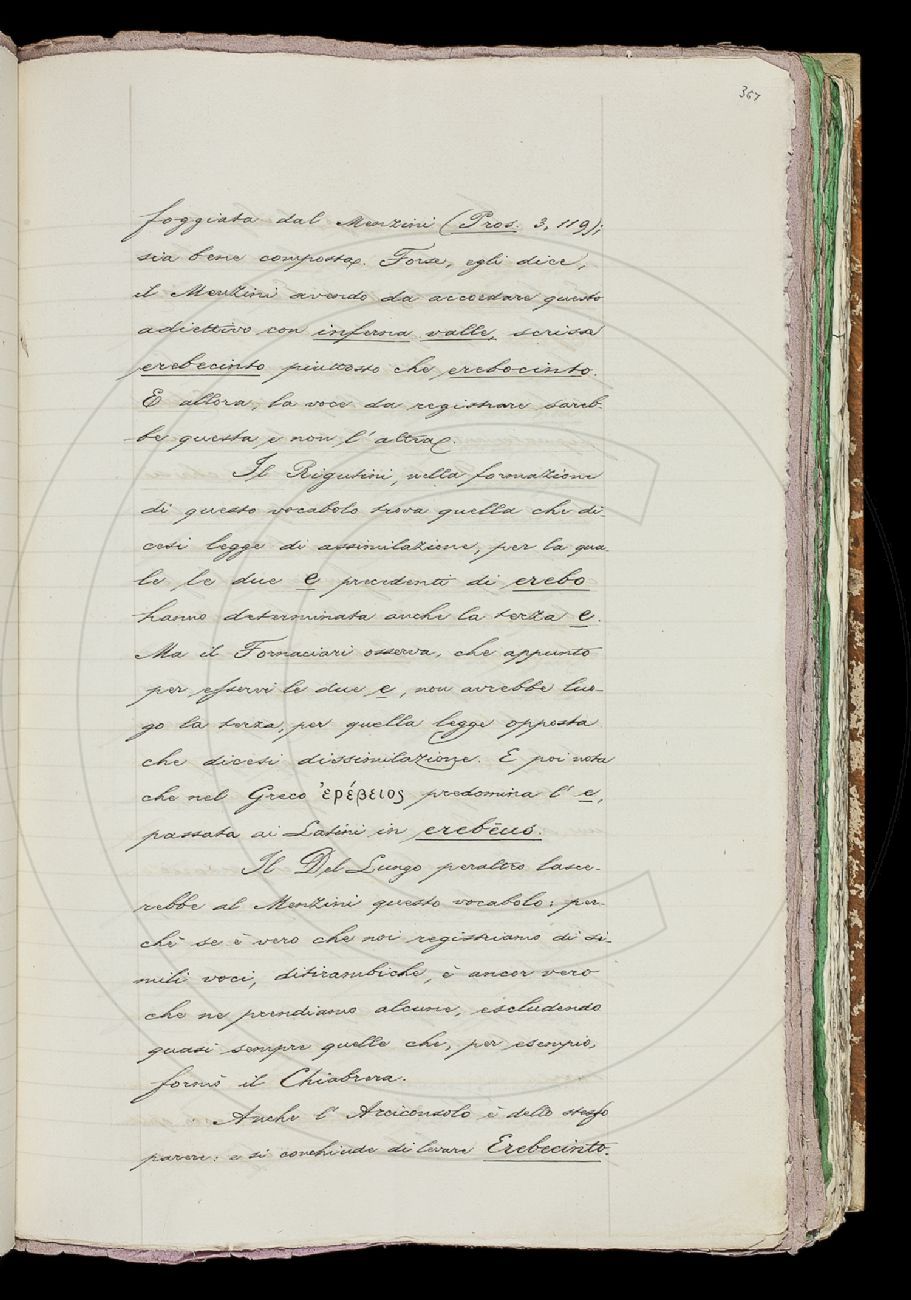 367
foggiata dal Menzini (Pros. 3, 119);
sia bene composta. Forse, egli dice,
il Menzini avendo da accordare questo
adiettivo con inferna valle, scrisse
erebecinto piuttosto che erebocinto.
E allora, la voce da registrare sareb-
be questa e non l'altra.
Il Rigutini, nella formazione
di questo vocabolo trova quella che di-
cesi legge di assimilazione, per la qua-
le le due e precedenti di erebo
hanno determinata anche la terza e.
Ma il Fornaciari osserva, che appunto
per esservi le due e, non avrebbe luo-
go la terza, per quella legge opposta
che dicesi dissimilazione. E poi nota
che nel Greco ἐρέβειος predomina l'e,
passata ai Latini in erebēus.
Il Del Lungo peraltro lasce-
rebbe al Menzini questo vocabolo: per-
chè se è vero che noi registriamo di si-
mili voci, ditirambiche, è ancor vero
che ne prendiamo alcune, escludendo
quasi sempre quelle che, per esempio,
formò il Chiabrera.
Anche l'Arciconsolo è dello stesso
parere: e si conchiude di levare Erebecinto.